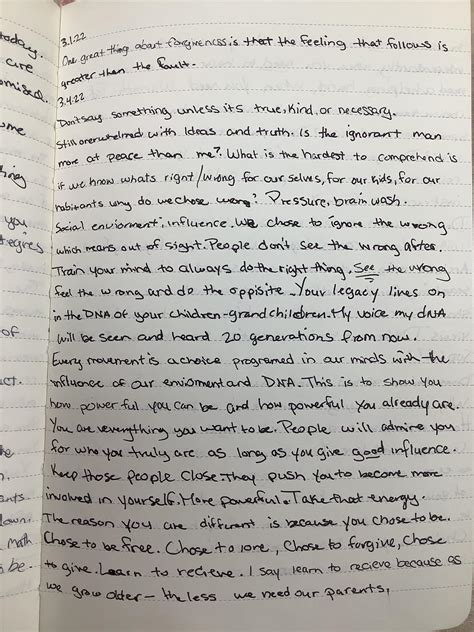 today.
care
omised.
ome
thing
you
tegrés
of
act.
he
ants
down.
Math
be.
3.1.22
One great thing about forgiveness is that the feeling that follows is
greater than the fault.
3.4.22
Don't say something unless its true, kind, or necessary.
Still overwhelmed with Ideas and truth. Is the ignorant man
more at peace than me? What is the hardest to comprehend is
if we know whats right/wrong for our selves, for our kids, for our
habitants why do we chose wrong? Pressure, brain wash.
Social enviorment, influence. We chose to ignore the wrong
which means out of sight. People don't see the wrong after.
Train your mind to always do the right thing. See the wrong
feel the wrong and do the oppisite. Your legacy lives on
in the DNA of your children-grandchildren. My voice my DNA
will be seen and heard 20 generations from now.
Every movement is a choice programed in our minds with the
influence of our enviorment and DNA. This is to show you
how powerful you can be and how powerful you already are.
You are everything you want to be. People will admire you
for who you truly are as long as you give good influence.
Keep those people close. They push you to become more
involved in yourself. More powerful. Take that energy.
The reason you are different is because you chose to be.
Chose to be free. Chose to love, Chose to forgive, Chose
to give. Learn to recieve. I say learn to recieve because as
we grow older - the less we need our parents,